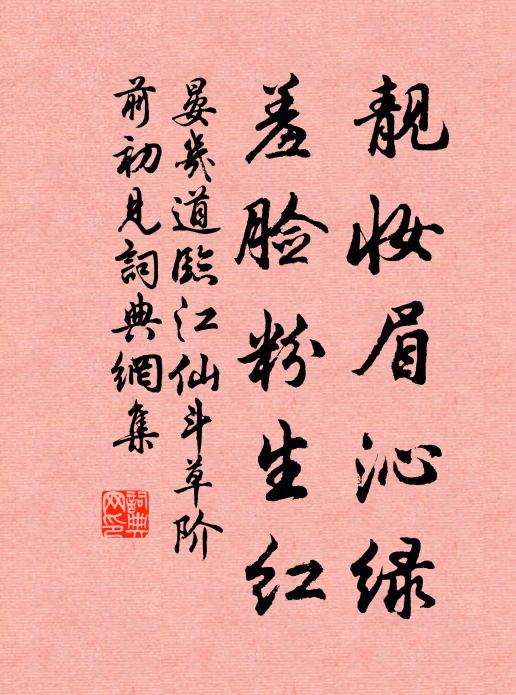 靓妆眉沁绿
羞脸粉生红
晏幾道臨江仙斗草阶
前初见詞典網集
詞典网印